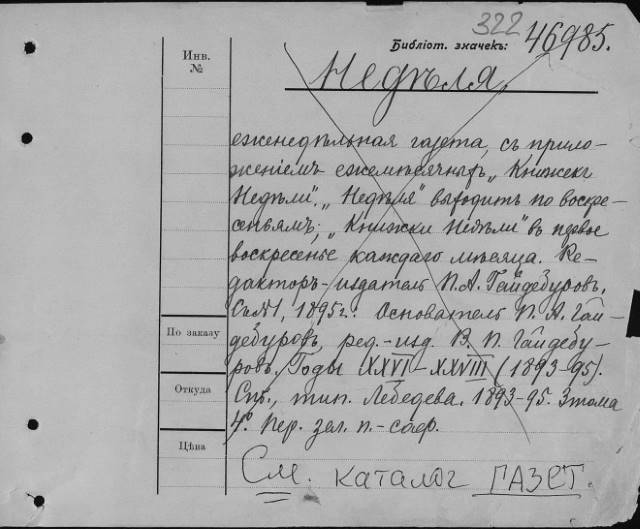 322
Библіот. значекъ: 46985.
Инв.
№
Недѣля,
еженедѣльная газета, съ прило-
женіемъ ежемѣсячныхъ „Книжекъ
Недѣли“. „Недѣля“ выходитъ по воскре-
сеньямъ; „Книжки Недѣли“ въ первое
воскресенье каждаго мѣсяца. Ре-
дакторъ-издатель П. А. Гайдебуровъ.
Съ №1, 1895 г.: Основатель П. А. Гай-
дебуровъ, ред.-изд. В. П. Гайдебу-
ровъ. Годы XXVI–XXVIII (1893-95).
Спб., тип. Лебедева. 1893-95. 3 тома
4°. Пер. зел. п.-саф.
По заказу
Откуда
Цѣна
См. каталог ГАЗЕТ.